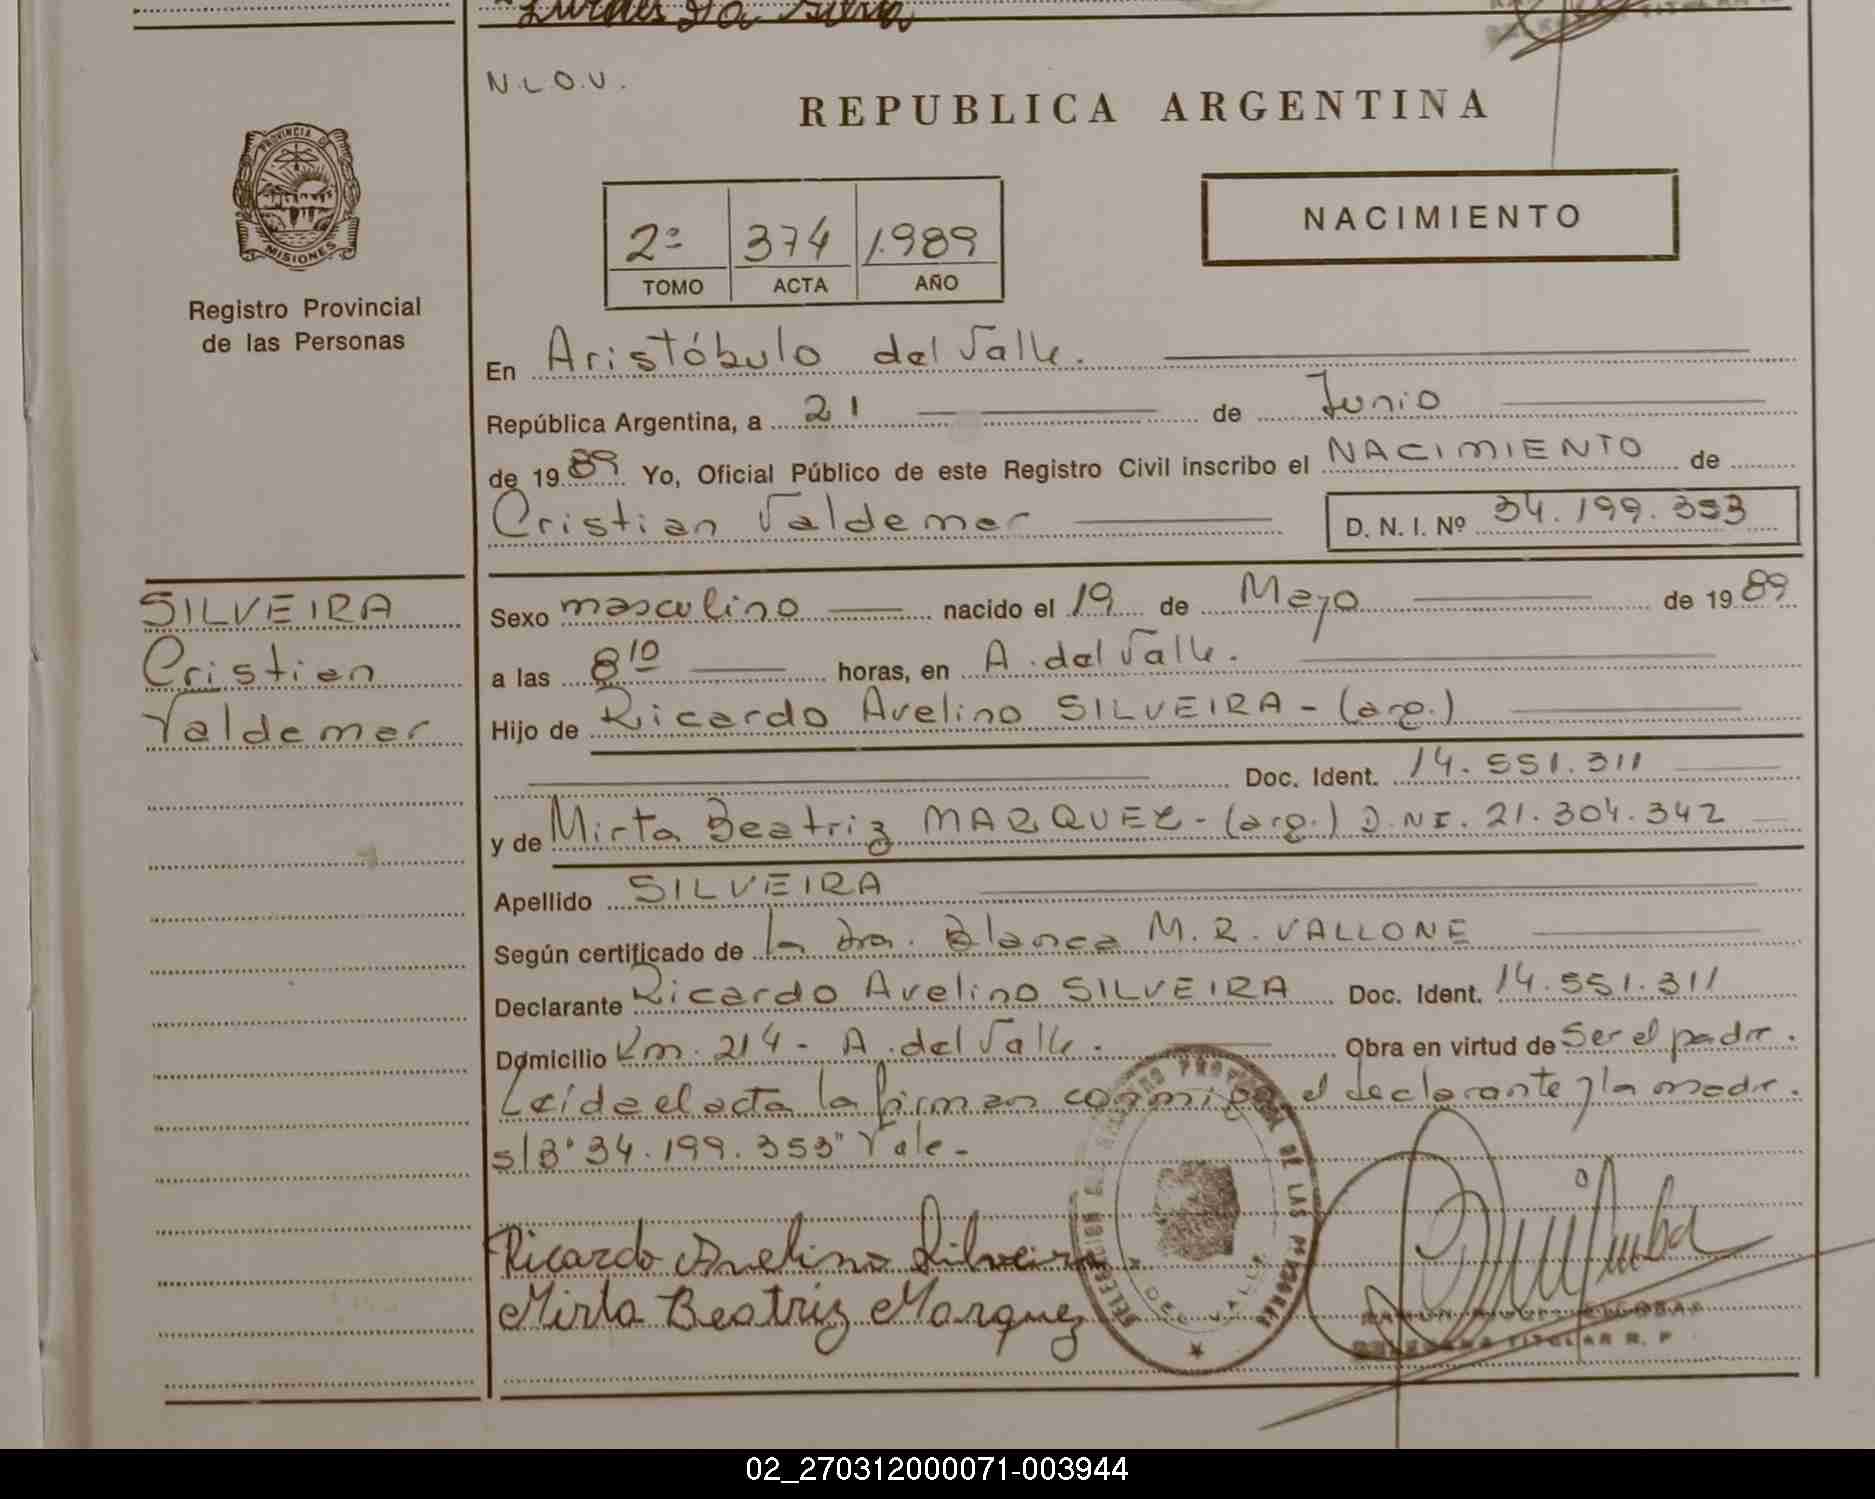 Lurdes Da Silva
N.L.O.V.
REPUBLICA ARGENTINA
PROVINCIA DE
MISIONES
Registro Provincial
de las Personas
NACIMIENTO
2º 374 1.989
TOMO ACTA AÑO
En Aristóbulo del Valle.
República Argentina, a 21 de Junio
de 1989 Yo, Oficial Público de este Registro Civil inscribo el NACIMIENTO de
Cristian Valdemar D. N. I. Nº 34.199.353
SILVEIRA
Cristian
Valdemar
Sexo masculino nacido el 19 de Mayo de 1989
a las 8 10 horas, en A. del Valle.
Hijo de Ricardo Avelino SILVEIRA - (arg.)
Doc. Ident. 14.551.311
y de Mirta Beatriz MARQUEZ - (arg.) D.NI. 21.304.342
Apellido SILVEIRA
Según certificado de la Dra. Blanca M. R. VALLONE
Declarante Ricardo Avelino SILVEIRA Doc. Ident. 14.551.311
Domicilio Km. 214 - A. del Valle. Obra en virtud de ser el padre.
Leída el acta la firman conmigo el declarante y la madre.
s/B "34.199.353" Vale -
Ricardo Avelino Silveira
Mirta Beatriz Marquez
A. DEL VALLE
TITULAR R. P
02_270312000071-003944